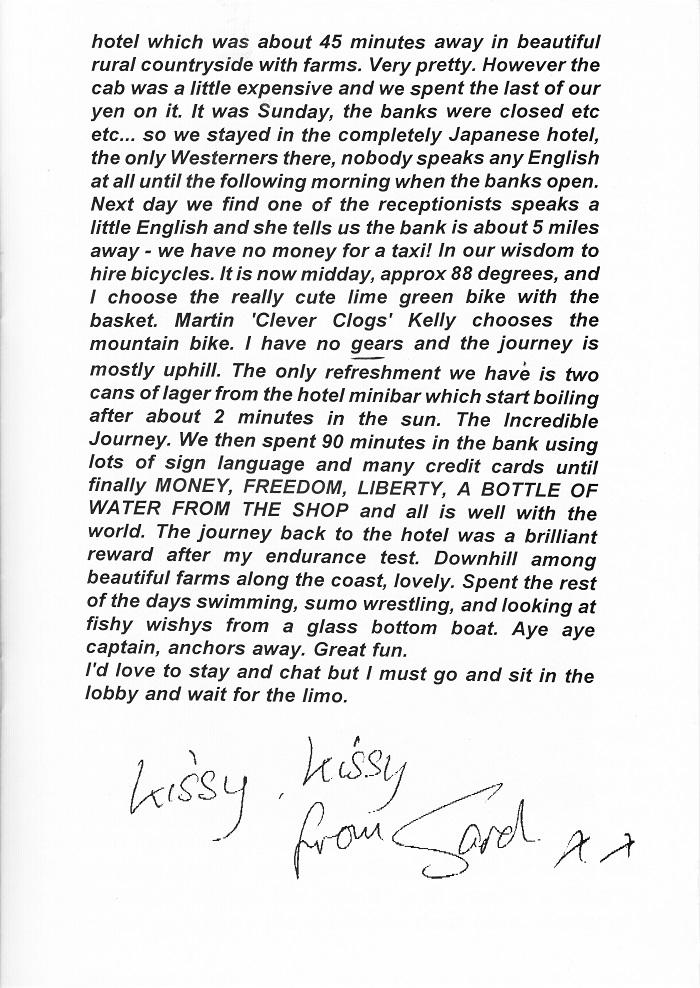 hotel which was about 45 minutes away in beautiful
rural countryside with farms. Very pretty. However the
cab was a little expensive and we spent the last of our
yen on it. It was Sunday, the banks were closed etc
etc... so we stayed in the completely Japanese hotel,
the only Westerners there, nobody speaks any English
at all until the following morning when the banks open.
Next day we find one of the receptionists speaks a
little English and she tells us the bank is about 5 miles
away - we have no money for a taxi! In our wisdom to
hire bicycles. It is now midday, approx 88 degrees, and
I choose the really cute lime green bike with the
basket. Martin 'Clever Clogs' Kelly chooses the
mountain bike. I have no gears and the journey is
mostly uphill. The only refreshment we have is two
cans of lager from the hotel minibar which start boiling
after about 2 minutes in the sun. The Incredible
Journey. We then spent 90 minutes in the bank using
lots of sign language and many credit cards until
finally MONEY, FREEDOM, LIBERTY, A BOTTLE OF
WATER FROM THE SHOP and all is well with the
world. The journey back to the hotel was a brilliant
reward after my endurance test. Downhill among
beautiful farms along the coast, lovely. Spent the rest
of the days swimming, sumo wrestling, and looking at
fishy wishys from a glass bottom boat. Aye aye
captain, anchors away. Great fun.
I'd love to stay and chat but I must go and sit in the
lobby and wait for the limo.
Kissy, Kissy
from Sard x x